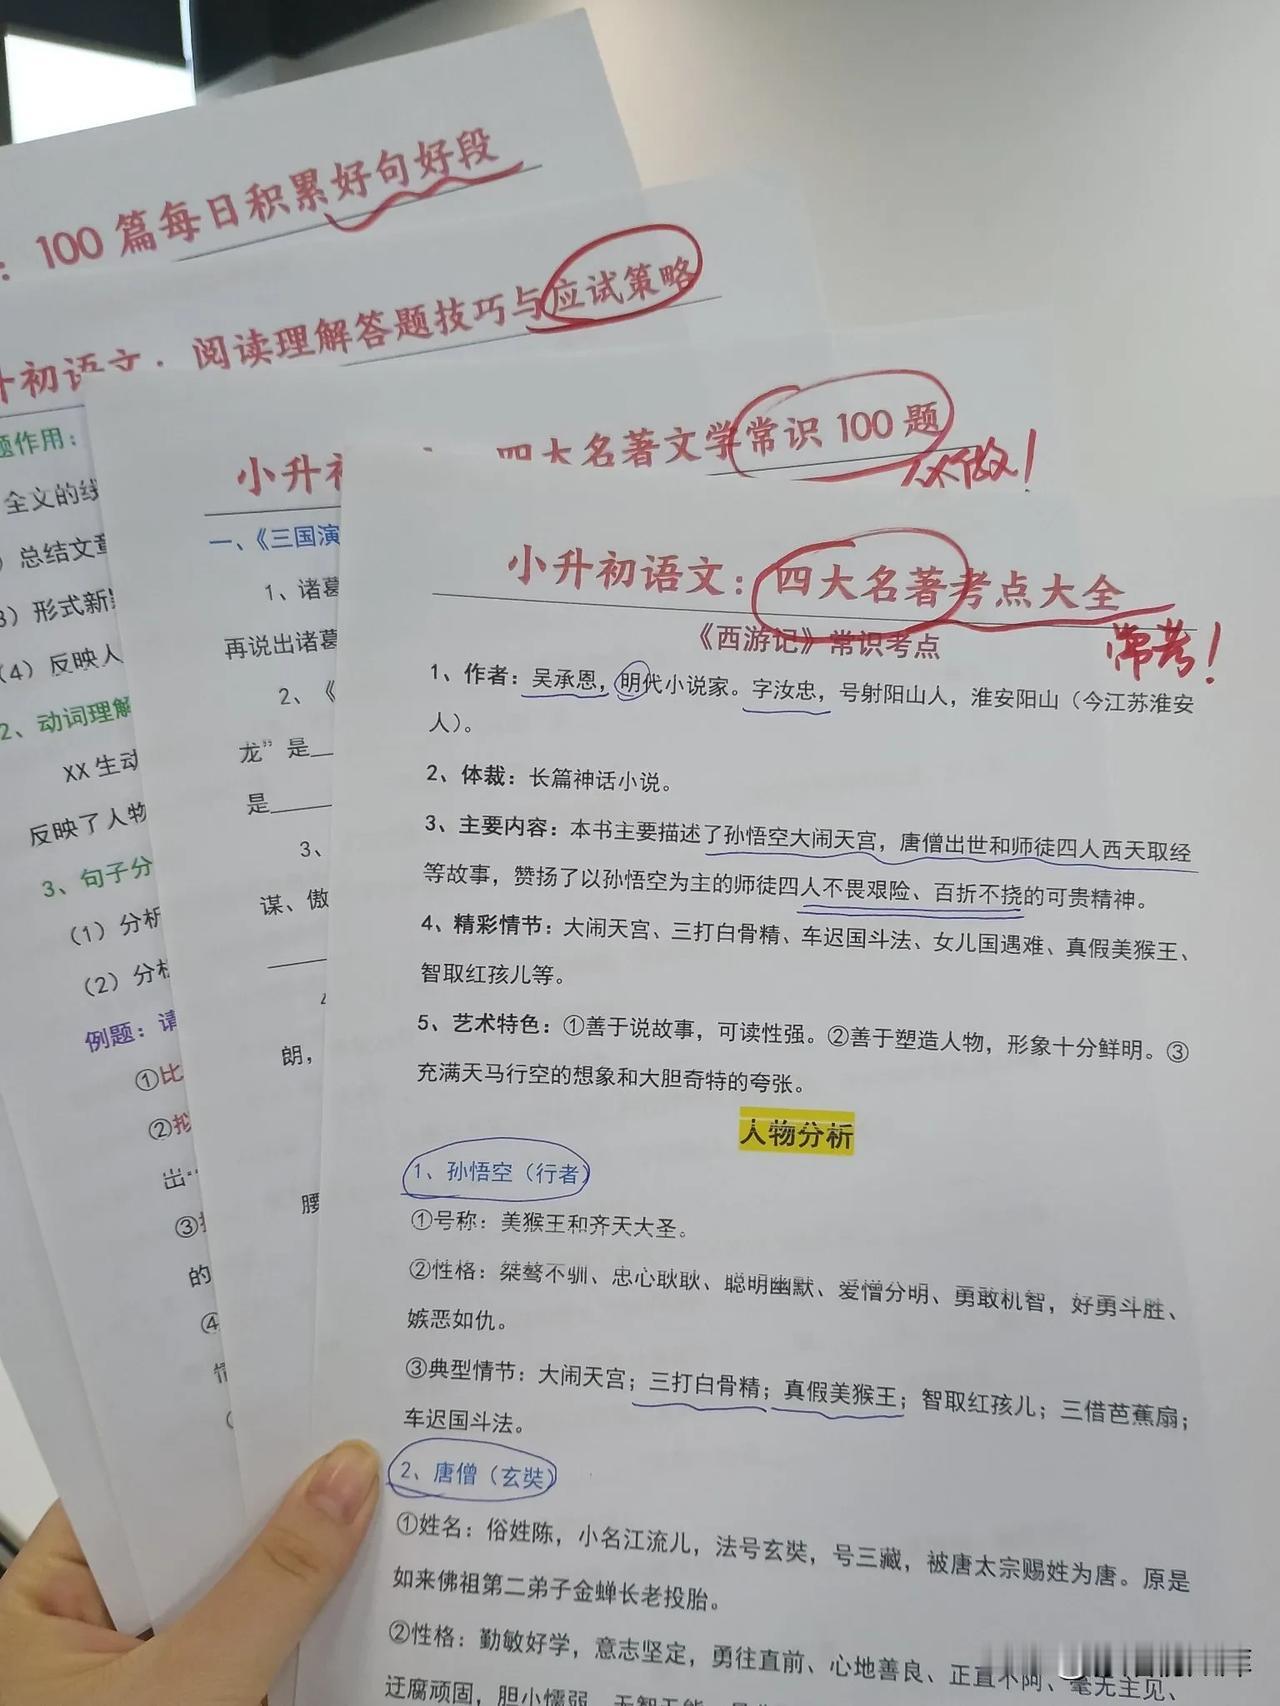 ：100篇每日积累好句好段
升初语文：阅读理解答题技巧与应试策略
题作用：
全文的线
）总结文章
3）形式新
（4）反映人
2、动词理解
XX生动
反映了人物
3、句子分
（1）分析
（2）分析
例题：请
①比
②拟
出…
③
的
④
四大名著文学常识100题
必做！
小升初
一、《三国演
1、诸葛
再说出诸葛
2、《
龙”是
是
3、
谋、傲
4
朗，
腰
小升初语文：四大名著考点大全
常考！
《西游记》常识考点
1、作者：吴承恩，明代小说家。字汝忠，号射阳山人，淮安阳山（今江苏淮安
人）。
2、体裁：长篇神话小说。
3、主要内容：本书主要描述了孙悟空大闹天宫，唐僧出世和师徒四人西天取经
等故事，赞扬了以孙悟空为主的师徒四人不畏艰险、百折不挠的可贵精神。
4、精彩情节：大闹天宫、三打白骨精、车迟国斗法、女儿国遇难、真假美猴王、
智取红孩儿等。
5、艺术特色：①善于说故事，可读性强。②善于塑造人物，形象十分鲜明。③
充满天马行空的想象和大胆奇特的夸张。
人物分析
1、孙悟空（行者）
①号称：美猴王和齐天大圣。
②性格：桀骜不驯、忠心耿耿、聪明幽默、爱憎分明、勇敢机智，好勇斗胜、
嫉恶如仇。
③典型情节：大闹天宫；三打白骨精；真假美猴王；智取红孩儿；三借芭蕉扇；
车迟国斗法。
2、唐僧（玄奘）
①姓名：俗姓陈，小名江流儿，法号玄奘，号三藏，被唐太宗赐姓为唐。原是
如来佛祖第二弟子金蝉长老投胎。
②性格：勤敏好学，意志坚定，勇往直前、心地善良、正直不阿、毫无主见、
迂腐顽固，胆小懦弱、无智无能、